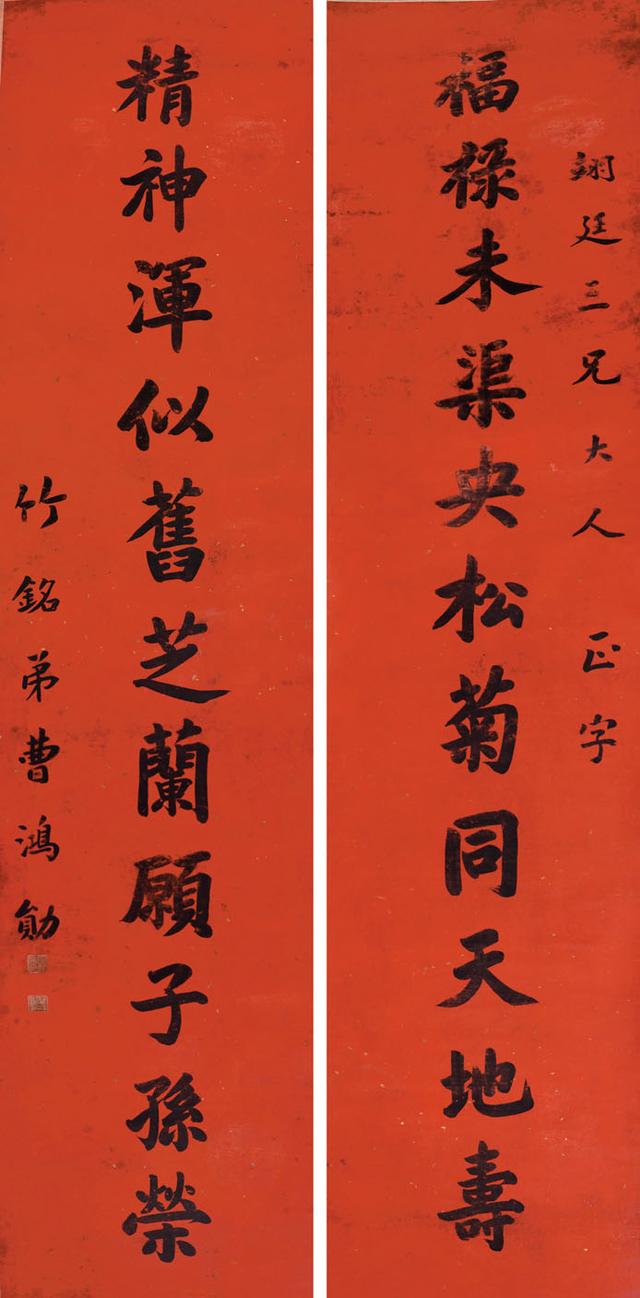 翊廷三兄大人 正字
福祿未渠央松菊同天地壽
精神渾似舊芝蘭願子孫榮
竹銘弟曹鴻勛